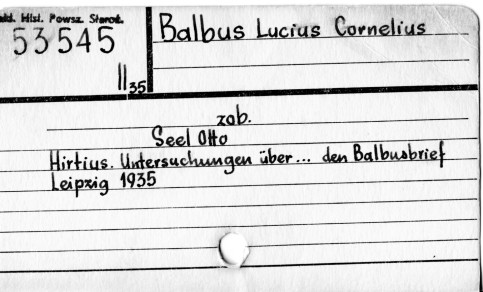 akł. Hist. Powsz. Staroż.
53545
II 35
Balbus Lucius Cornelius
zob.
Seel Otto
Hirtius. Untersuchungen über... den Balbusbrief
Leipzig 1935